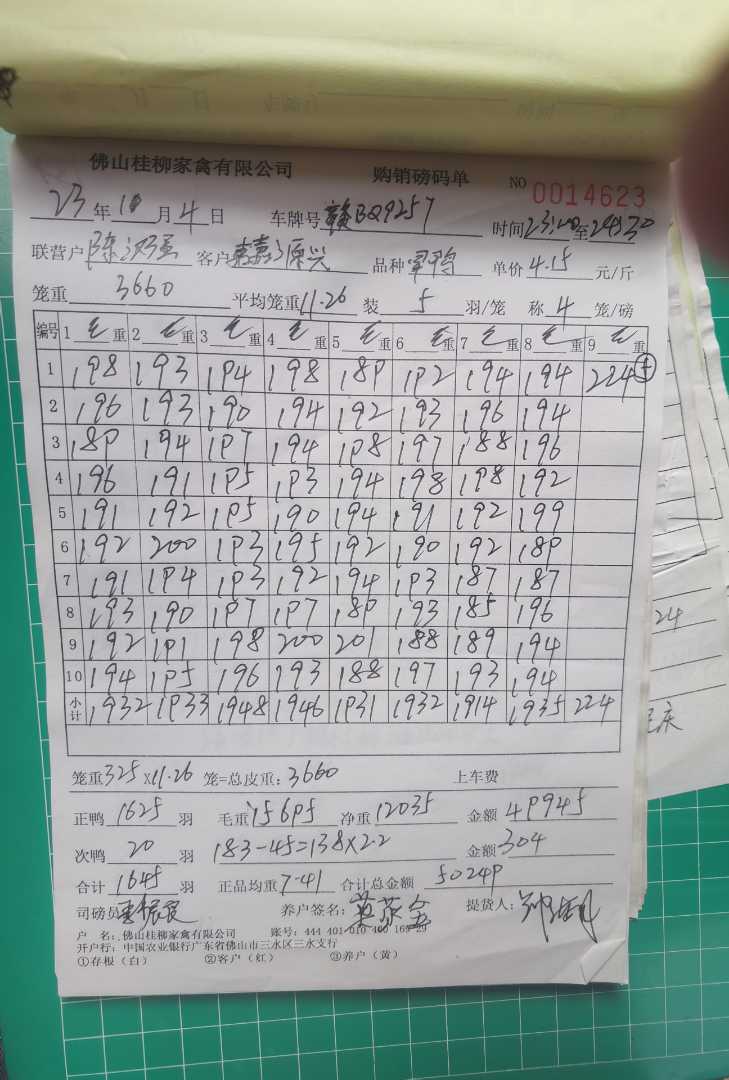 佛山桂柳家禽有限公司 购销磅码单 NO 0014623
23年10月4日 车牌号赣BQ9257 时间23:00至24:30
联营户 客户 品种 单价4.15元/斤
笼重3660 平均笼重11.26 装5羽/笼 称4笼/磅
编号 1毛重 2毛重 3毛重 4毛重 5毛重 6毛重 7毛重 8毛重 9毛重
1 198 193 194 198 189 192 194 194 224⑤
2 196 193 190 194 192 193 196 194
3 189 194 197 194 198 197 188 196
4 196 191 195 193 194 198 198 192
5 191 192 195 190 194 191 192 199
6 192 200 193 195 192 190 192 189
7 191 194 193 192 194 193 187 187
8 193 190 197 197 189 193 185 196
9 192 191 198 200 201 188 189 194
10 194 195 196 193 188 197 193 194
小计 1932 1933 1948 1946 1931 1932 1914 1935 224
笼重325×11.26笼=总皮重:3660 上车费
正鸭1625羽 毛重15695 净重12035 金额49945
次鸭20羽 183-45=138×2.2 金额304
合计1645羽 正品均重7.41 合计总金额50249
司磅员: 养户签名: 提货人:
户 名:佛山桂柳家禽有限公司 账号:444 401 010 400 169 29
开户行:中国农业银行广东省佛山市三水区三水支行
①存根(白) ②客户(红) ③养户(黄)
24